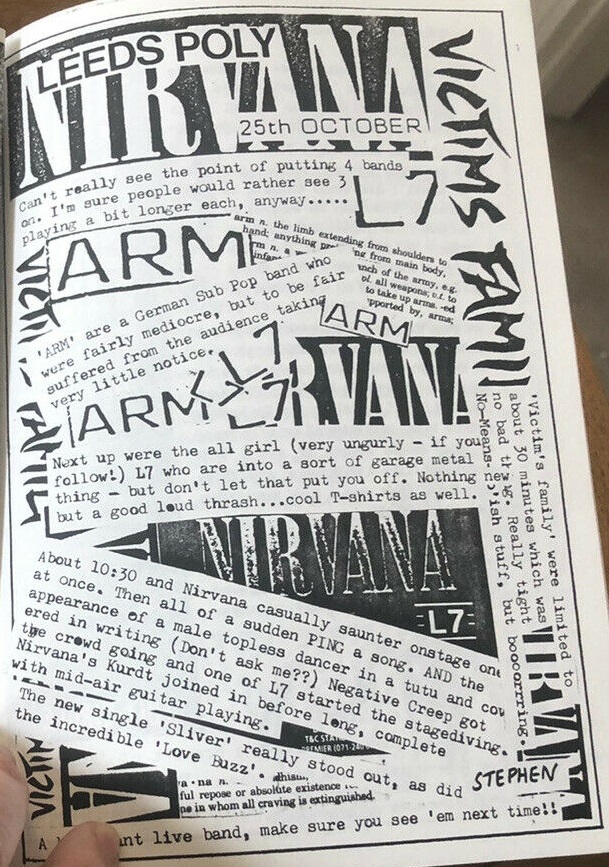 LEEDS POLY
NIRVANA
25th OCTOBER
Can't really see the point of putting 4 bands
on. I'm sure people would rather see 3
playing a bit longer each, anyway.....
L7
VICTIMS FAMIL
ARM
arm n. the limb extending from shoulders to
hand; anything from main body,
infan
nch of the army, e.g.
ol. all weapons; v.t. to
to take up arms. -ed
pported by, arms;
'ARM' are a German Sub Pop band who
were fairly mediocre, but to be fair
suffered from the audience taking
very little notice.
ARM
L7
ARM
L7
RVANA
Next up were the all girl (very ungurly - if you
follow!) L7 who are into a sort of garage metal
thing - but don't let that put you off. Nothing new
but a good loud thrash...cool T-shirts as well.
'Victim's family' were limited to
about 30 minutes which was
no bad thing. Really tight
No-Means-No'ish stuff, but boocorrring.
NIRVANA
L7
About 10:30 and Nirvana casually saunter onstage
at once. Then all of a sudden PING a song. AND the
appearance of a male topless dancer in a tutu and cov
ered in writing (Don't ask me??) Negative Creep got
the crowd going and one of L7 started the stagediving.
Nirvana's Kurdt joined in before long, complete
with mid-air guitar playing.
T&C STA
PREMIER (071-240
The new single 'Sliver' really stood out, as did
the incredible 'Love Buzz'.
STEPHEN
NIRVANA
VICTIM
va·na n. dhism,
ful repose or absolute existence
ne in whom all craving is extinguished.
A ant live band, make sure you see 'em next time!!